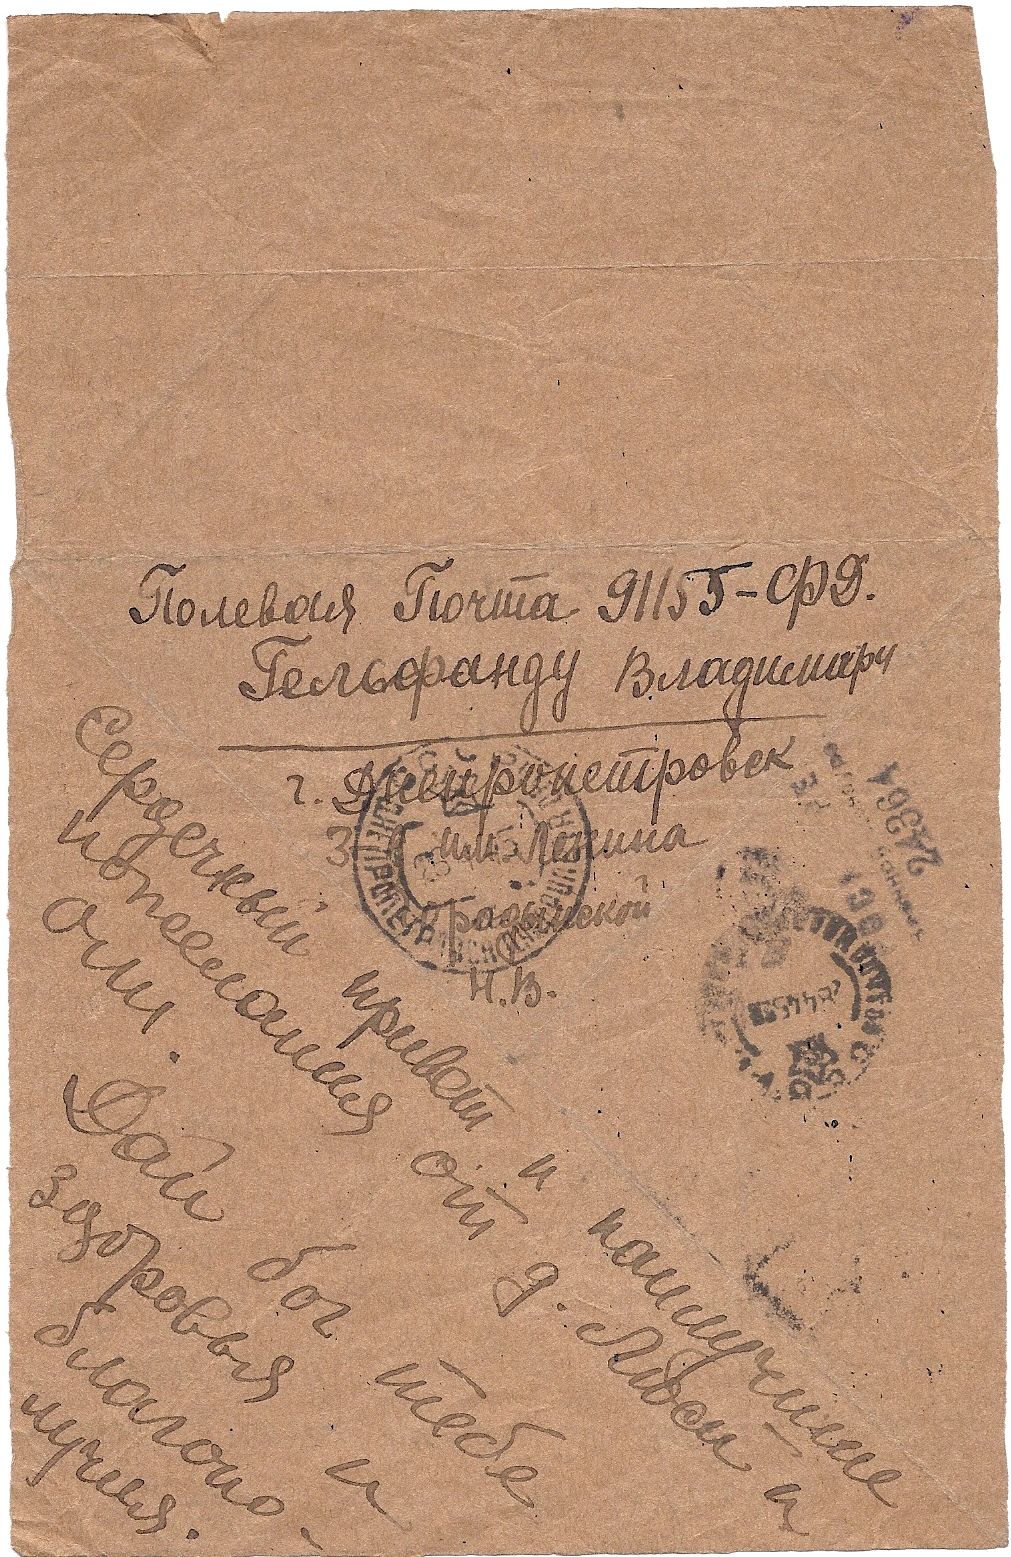 Полевая Почта 91155-ФД.
Гельфанду Владимиру
г. Днепропетровск
им. Ленина
Городынской
Н.В.
Сердечный привет и наилучшие
пожелания от д. Любы и
Оли. Дай бог тебе
здоровья и
благопо-
лучия.
24364